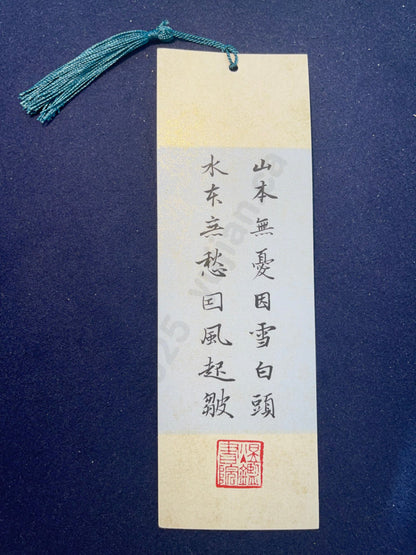 山本無憂因雪白頭
水本無愁因風起皺